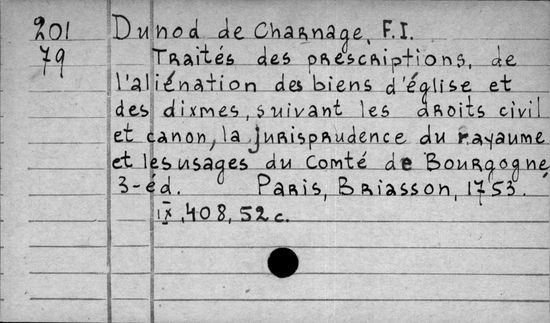 201 Dunod de Charnage, F.I.
79 Traités des prescriptions, de
l'aliénation des biens d'église et
des dixmes, suivant les droits civil
et canon, la jurisprudence du rayaume
et les usages du Comté de Bourgogne,
3-éd. Paris, Briasson, 1753.
IX, 408, 52 c.